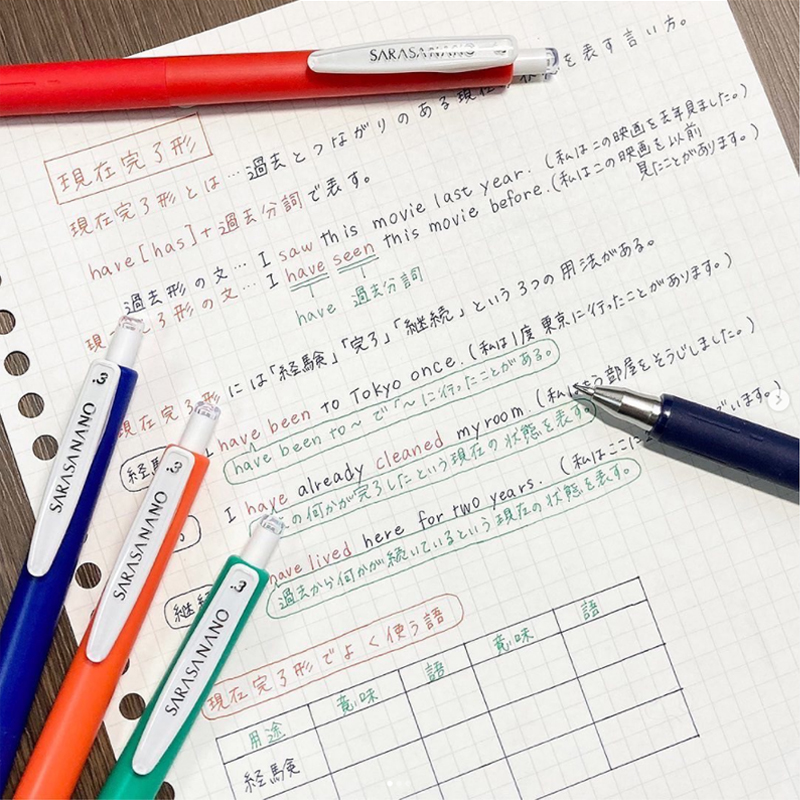 SARASA NANO 0.3
現在完了形
現在完了形とは…過去とつながりのある現在を表す言い方。
have[has]+過去分詞で表す。
過去形の文…I saw this movie last year.(私はこの映画を去年見ました。)
現在完了形の文…I have seen this movie before.(私はこの映画を以前見たことがあります。)
have 過去分詞
現在完了形には「経験」「完了」「継続」という3つの用法がある。
経験 I have been to Tokyo once.(私は1度東京に行ったことがあります。)
have been to~で「~に行ったことがある。
I have already cleaned my room.(私はもう部屋をそうじしました。)
の何かが完了したという現在の状態を表す。
have lived here for two years.(私はここに
います。)
継
過去から何かが続いているという現在の状態を表す。
現在完了形でよく使う語
用途 意味 語 意味 語
経験
SARASA NANO 0.3
SARASA NANO 0.3
SARASA NANO 0.3